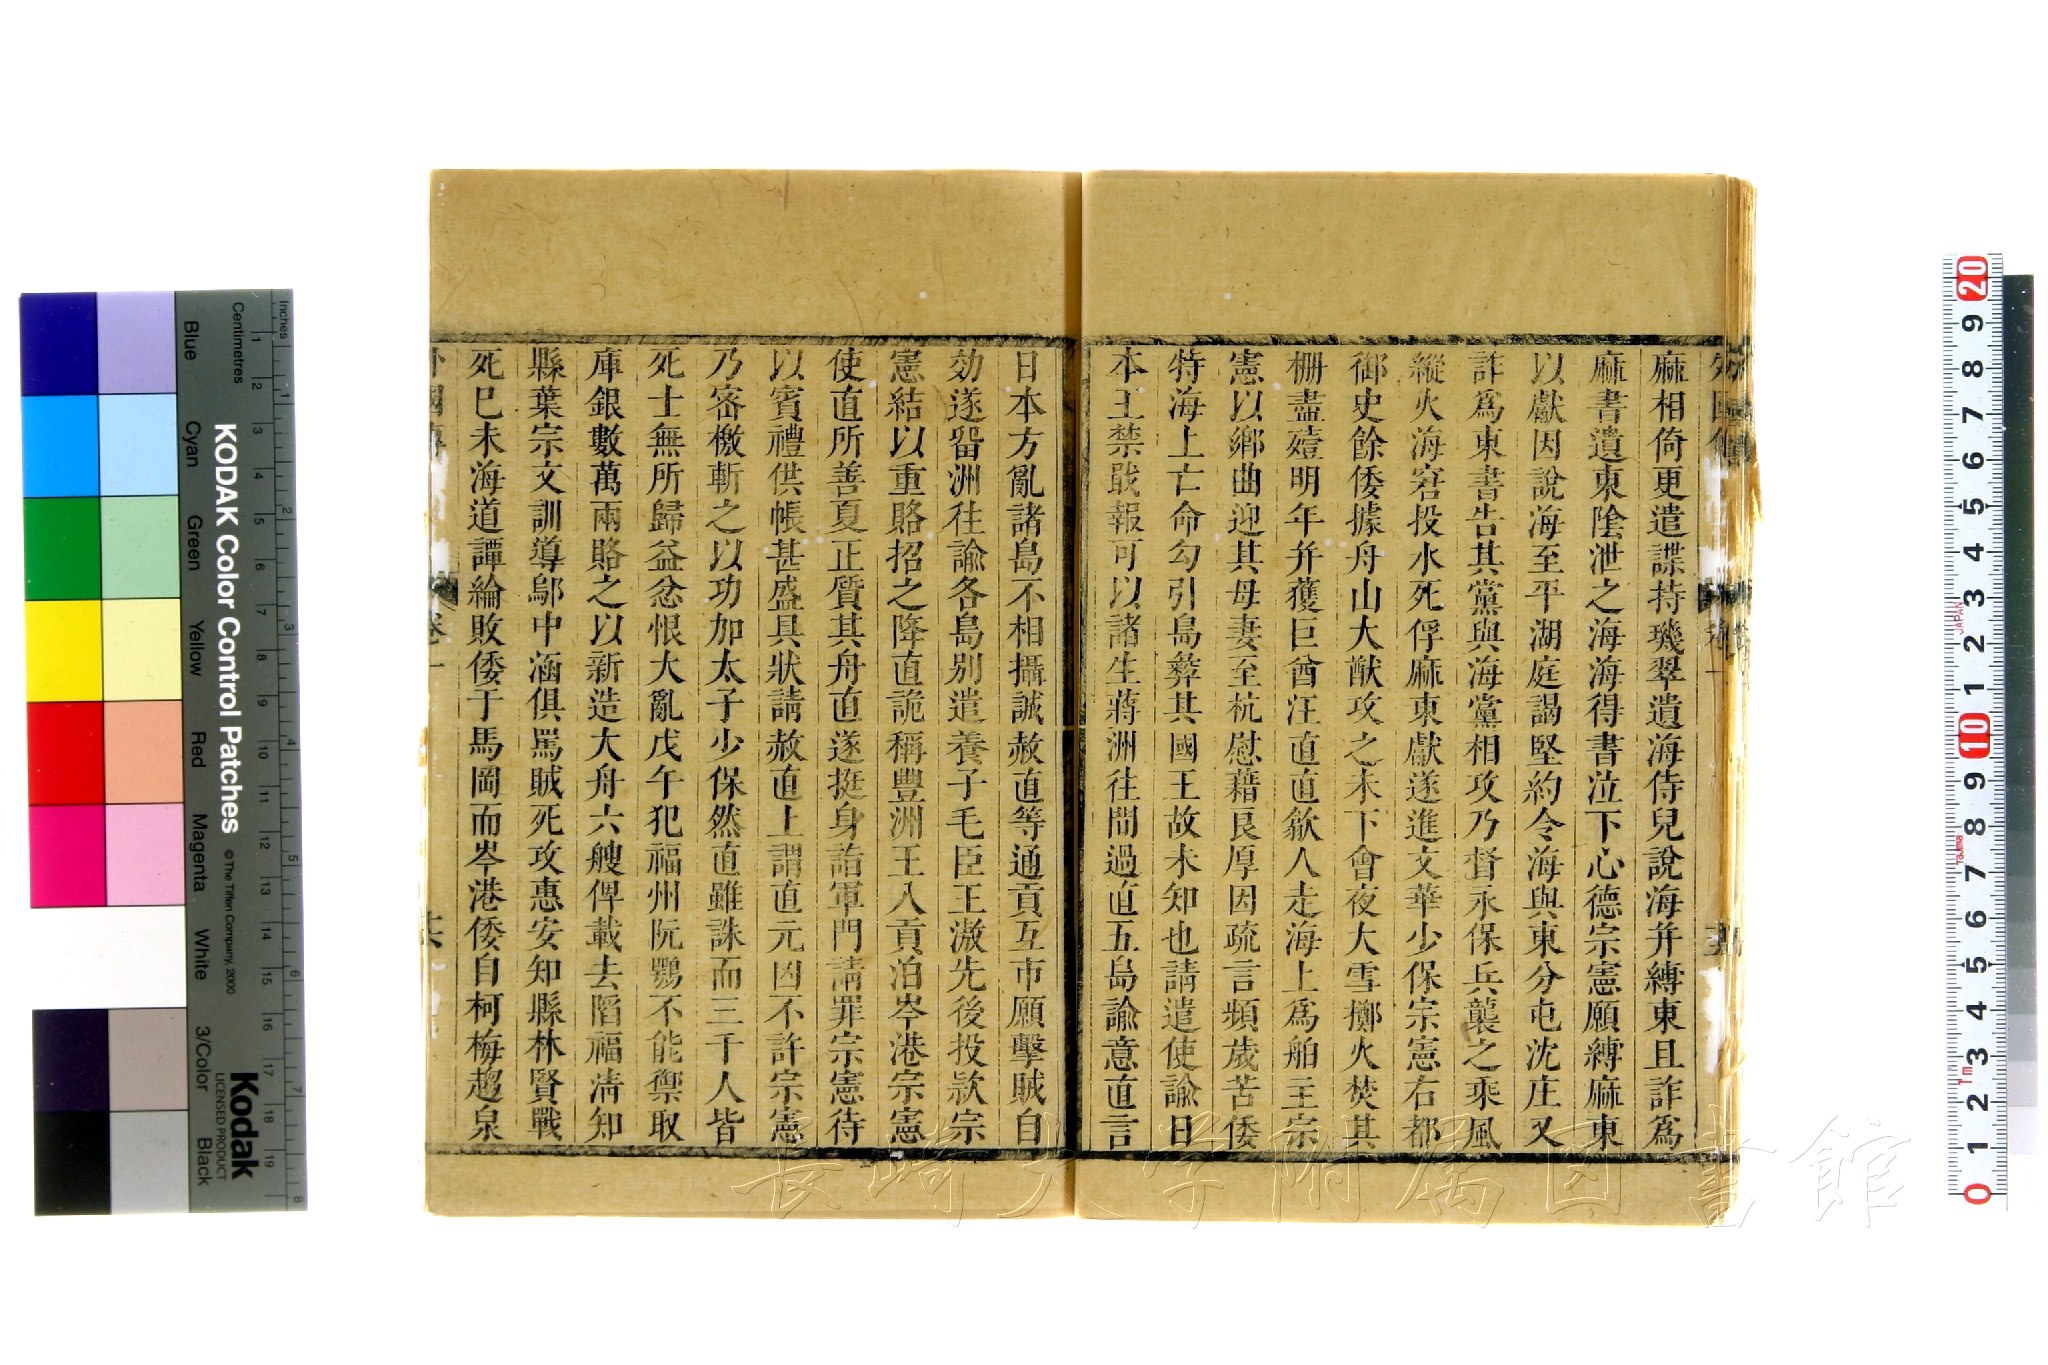 麻相倚更遣諜持璣翠遺海侍兒說海并縛東且詐爲
麻書遺東陰泄之海海得書泣下心德宗憲願縛麻東
以獻因說海至平湖庭謁堅約令海與東分屯沈庄又
詐爲東書告其黨與海黨相攻乃督永保兵襲之乘風
縱火海窘投水死俘麻東獻遂進文華少保宗憲右都
御史餘倭據舟山大猷攻之未下會夜大雪擲火焚其
柵盡殪明年并獲巨酋汪直直歙人走海上爲舶主宗
憲以鄉曲迎其母妻至杭慰藉艮厚因疏言頻歲苦倭
特海上亡命勾引島彜其國王故未知也請遣使諭日
本王禁戢報可以諸生蔣洲往間過直五島諭意直言
日本方亂諸島不相攝誠赦直等通貢互市願擊賊自
効遂留洲往諭各島别遣養子毛臣王滶先後投欵宗
憲結以重賂招之降直詭稱豐洲王入貢泊岑港宗憲
使直所善夏正質其舟直遂挺身詣軍門請罪宗憲待
以賓禮供帳甚盛具狀請赦直上謂直元凶不許宗憲
乃密檄斬之以功加太子少保然直雖誅而三千人皆
死士無所歸益忿恨大亂戊午犯福州阮鶚不能禦取
庫銀數萬兩賂之以新造大舟六艘俾載去陷福清知
縣葉宗文訓導鄔中涵俱罵賊死攻惠安知縣林賢戰
死巳未海道譚綸敗倭于馬岡而岑港倭自柯梅趨泉
外國傳
卷一
六
KODAK Color Control Patches
© The Tiffen Company, 2000
Kodak
LICENSED PRODUCT
Inches
Centimetres
Blue
Cyan
Green
Yellow
Red
Magenta
White
3/Color
Black
長崎大学附属図書館
JAPAN
Tajima
1m